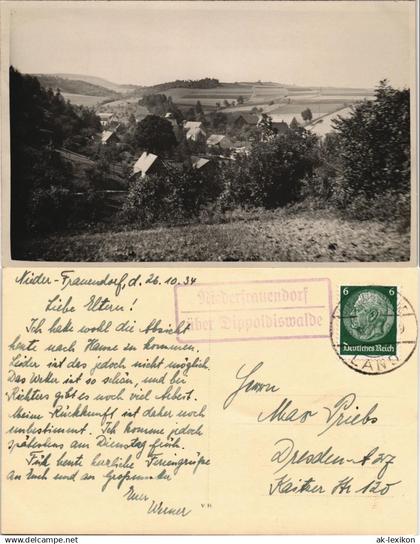 Nieder-Frauendorf, d. 26.10.34
Liebe Eltern!
Ich habe wohl die Absicht
heute nach Hause zu kommen.
Leider ist das jedoch nicht möglich.
Das Wetter ist so schön, und bei
Richters gibt es noch viel Arbeit.
Meine Rückkunft ist daher noch
unbestimmt. Ich komme jedoch
spätestens am Dienstag früh.
Für heute herzliche Feriengrüße
an Euch und an
Euer
Werner
Niederfrauendorf
über Dippoldiswalde
6 6
Deutsches Reich
LAND
Herrn
Max Priebs
Dresden-A 27
Kaitzer Str 120
V H
ak-lexikon.com